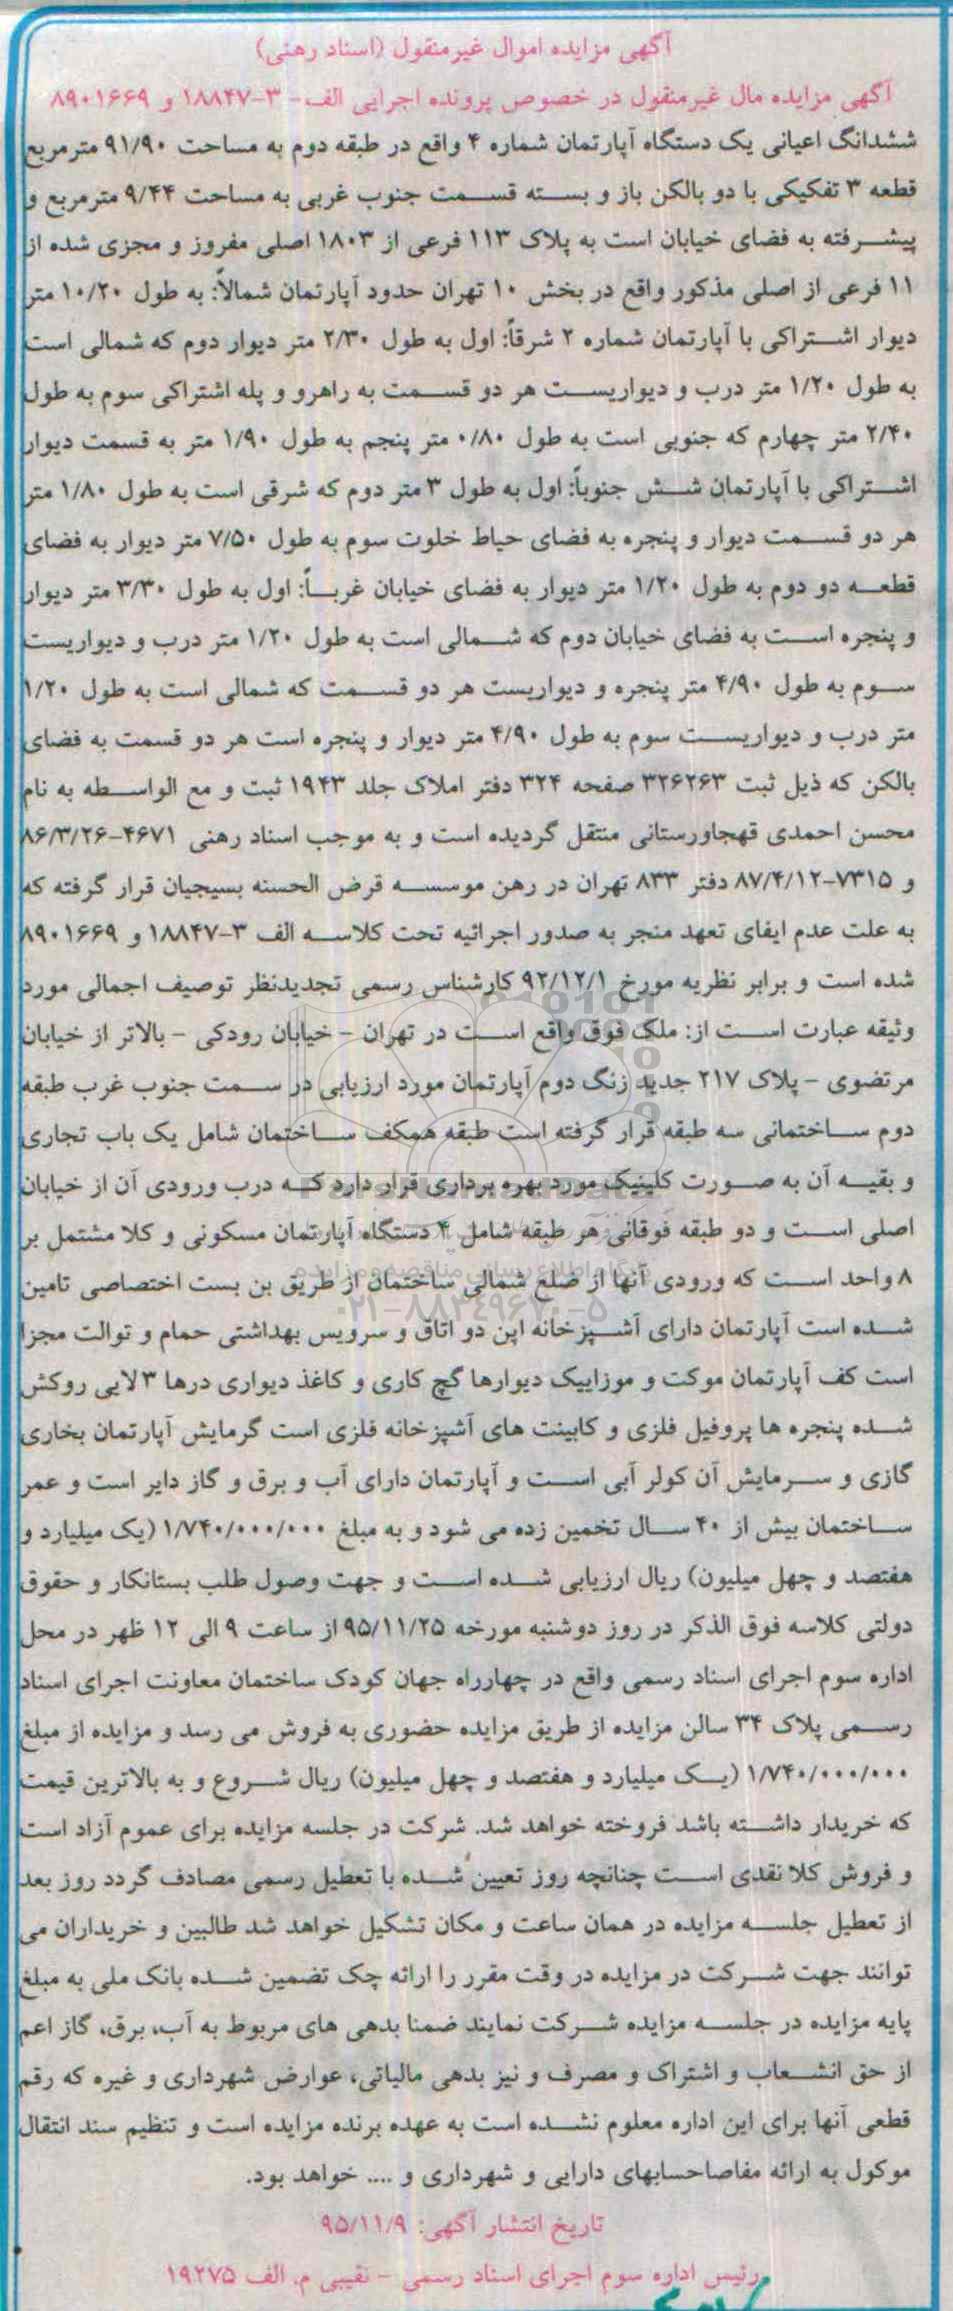 آگهی مزایده اموال غیرمنقول (اسناد رهنی)
آگهی مزایده مال غیرمنقول در خصوص پرونده اجرایی الف- ۳-۱۸۸۴۷ و ۸۹۰۱۶۶۹
ششدانگ اعیانی یک دستگاه آپارتمان شماره ۴ واقع در طبقه دوم به مساحت ۹۱/۹۰ مترمربع
قطعه ۳ تفکیکی با دو بالکن باز و بسته قسمت جنوب غربی به مساحت ۹/۴۴ مترمربع و
پیشرفته به فضای خیابان است به پلاک ۱۱۳ فرعی از ۱۸۰۳ اصلی مفروز و مجزی شده از
۱۱ فرعی از اصلی مذکور واقع در بخش ۱۰ تهران حدود آپارتمان شمالاً: به طول ۱۰/۲۰ متر
دیوار اشتراکی با آپارتمان شماره ۲ شرقاً: اول به طول ۲/۳۰ متر دیوار دوم که شمالی است
به طول ۱/۲۰ متر درب و دیواریست هر دو قسمت به راهرو و پله اشتراکی سوم به طول
۲/۴۰ متر چهارم که جنوبی است به طول ۰/۸۰ متر پنجم به طول ۱/۹۰ متر به قسمت دیوار
اشتراکی با آپارتمان شش جنوباً: اول به طول ۳ متر دوم که شرقی است به طول ۱/۸۰ متر
هر دو قسمت دیوار و پنجره به فضای حیاط خلوت سوم به طول ۷/۵۰ متر دیوار به فضای
قطعه دو دوم به طول ۱/۲۰ متر دیوار به فضای خیابان غرباً: اول به طول ۳/۳۰ متر دیوار
و پنجره است به فضای خیابان دوم که شمالی است به طول ۱/۲۰ متر درب و دیواریست
سوم به طول ۴/۹۰ متر پنجره و دیواریست هر دو قسمت که شمالی است به طول ۱/۲۰
متر درب و دیواریست سوم به طول ۴/۹۰ متر دیوار و پنجره است هر دو قسمت به فضای
بالکن که ذیل ثبت ۳۲۶۲۶۳ صفحه ۳۲۴ دفتر املاک جلد ۱۹۴۳ ثبت و مع الواسطه به نام
محسن احمدی قهجاورستانی منتقل گردیده است و به موجب اسناد رهنی ۴۶۷۱-۸۶/۳/۲۶
و ۷۳۱۵-۸۷/۴/۱۲ دفتر ۸۳۳ تهران در رهن موسسه قرض الحسنه بسیجیان قرار گرفته که
به علت عدم ایفای تعهد منجر به صدور اجرائیه تحت کلاسه الف ۳-۱۸۸۴۷ و ۸۹۰۱۶۶۹
شده است و برابر نظریه مورخ ۹۲/۱۲/۱ کارشناس رسمی تجدیدنظر توصیف اجمالی مورد
وثیقه عبارت است از: ملک فوق واقع است در تهران - خیابان رودکی - بالاتر از خیابان
مرتضوی - پلاک ۲۱۷ جدید زنگ دوم آپارتمان مورد ارزیابی در سمت جنوب غرب طبقه
دوم ساختمانی سه طبقه قرار گرفته است طبقه همکف ساختمان شامل یک باب تجاری
و بقیه آن به صورت کلینیک مورد بهره برداری قرار دارد که درب ورودی آن از خیابان
اصلی است و دو طبقه فوقانی هر طبقه شامل ۴ دستگاه آپارتمان مسکونی و کلا مشتمل بر
۸ واحد است که ورودی آنها از ضلع شمالی ساختمان از طریق بن بست اختصاصی تامین
شده است آپارتمان دارای آشپزخانه اپن دو اتاق و سرویس بهداشتی حمام و توالت مجزا
است کف آپارتمان موکت و موزاییک دیوارها گچ کاری و کاغذ دیواری درها ۳ لایی روکش
شده پنجره ها پروفیل فلزی و کابینت های آشپزخانه فلزی است گرمایش آپارتمان بخاری
گازی و سرمایش آن کولر آبی است و آپارتمان دارای آب و برق و گاز دایر است و عمر
ساختمان بیش از ۴۰ سال تخمین زده می شود و به مبلغ ۱/۷۴۰/۰۰۰/۰۰۰ (یک میلیارد و
هفتصد و چهل میلیون) ریال ارزیابی شده است و جهت وصول طلب بستانکار و حقوق
دولتی کلاسه فوق الذکر در روز دوشنبه مورخه ۹۵/۱۱/۲۵ از ساعت ۹ الی ۱۲ ظهر در محل
اداره سوم اجرای اسناد رسمی واقع در چهارراه جهان کودک ساختمان معاونت اجرای اسناد
رسمی پلاک ۳۴ سالن مزایده از طریق مزایده حضوری به فروش می رسد و مزایده از مبلغ
۱/۷۴۰/۰۰۰/۰۰۰ (یک میلیارد و هفتصد و چهل میلیون) ریال شروع و به بالاترین قیمت
که خریدار داشته باشد فروخته خواهد شد. شرکت در جلسه مزایده برای عموم آزاد است
و فروش کلا نقدی است چنانچه روز تعیین شده با تعطیل رسمی مصادف گردد روز بعد
از تعطیل جلسه مزایده در همان ساعت و مکان تشکیل خواهد شد طالبین و خریداران می
توانند جهت شرکت در مزایده در وقت مقرر را ارائه چک تضمین شده بانک ملی به مبلغ
پایه مزایده در جلسه مزایده شرکت نمایند ضمنا بدهی های مربوط به آب، برق، گاز اعم
از حق انشعاب و اشتراک و مصرف و نیز بدهی مالیاتی، عوارض شهرداری و غیره که رقم
قطعی آنها برای این اداره معلوم نشده است به عهده برنده مزایده است و تنظیم سند انتقال
موکول به ارائه مفاصاحسابهای دارایی و شهرداری و .... خواهد بود.
تاریخ انتشار آگهی: ۹۵/۱۱/۹
رئیس اداره سوم اجرای اسناد رسمی - نقیبی م. الف ۱۹۲۷۵